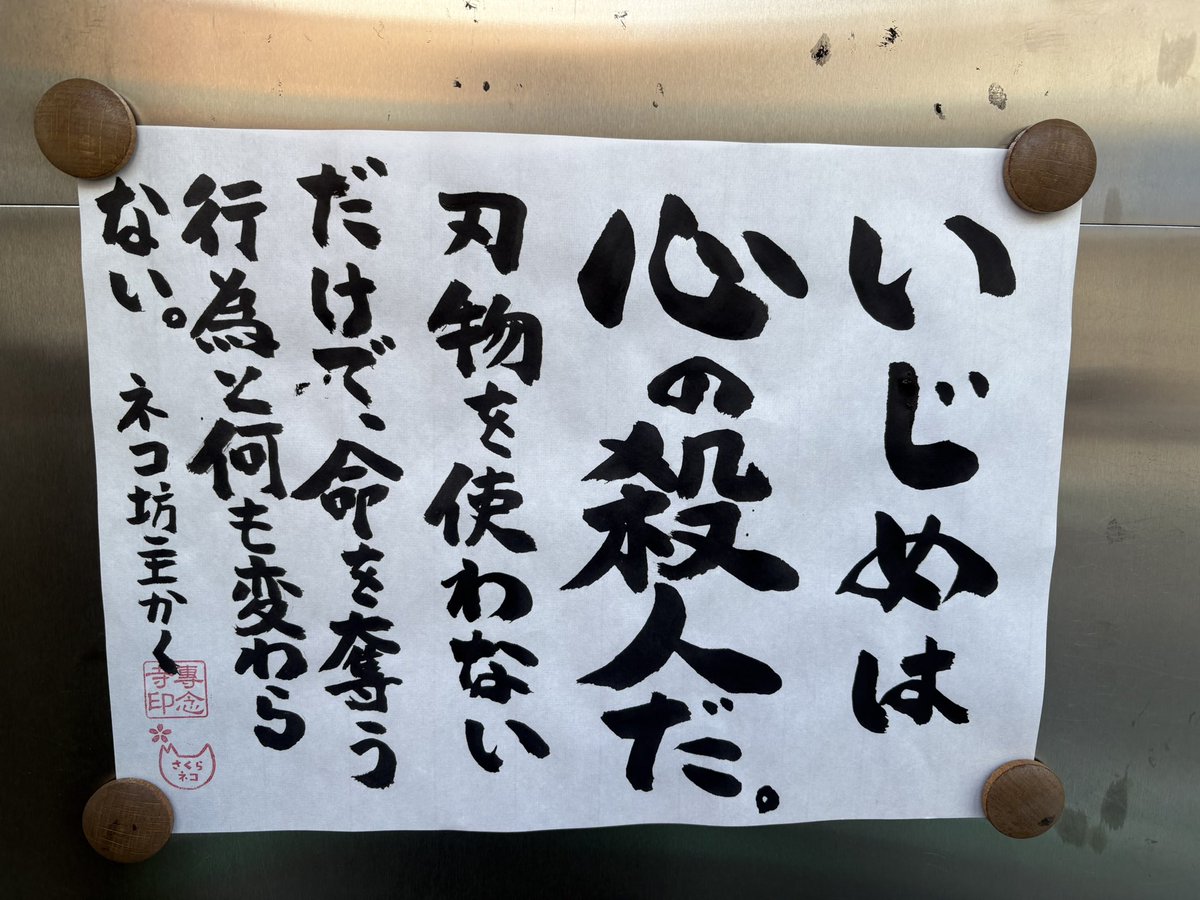 いじめは
心の殺人だ。
刃物を使わない
だけで、命を奪う
行為と何も変わら
ない。
ネコ坊主かく
專念
寺印
さくら
ネコ